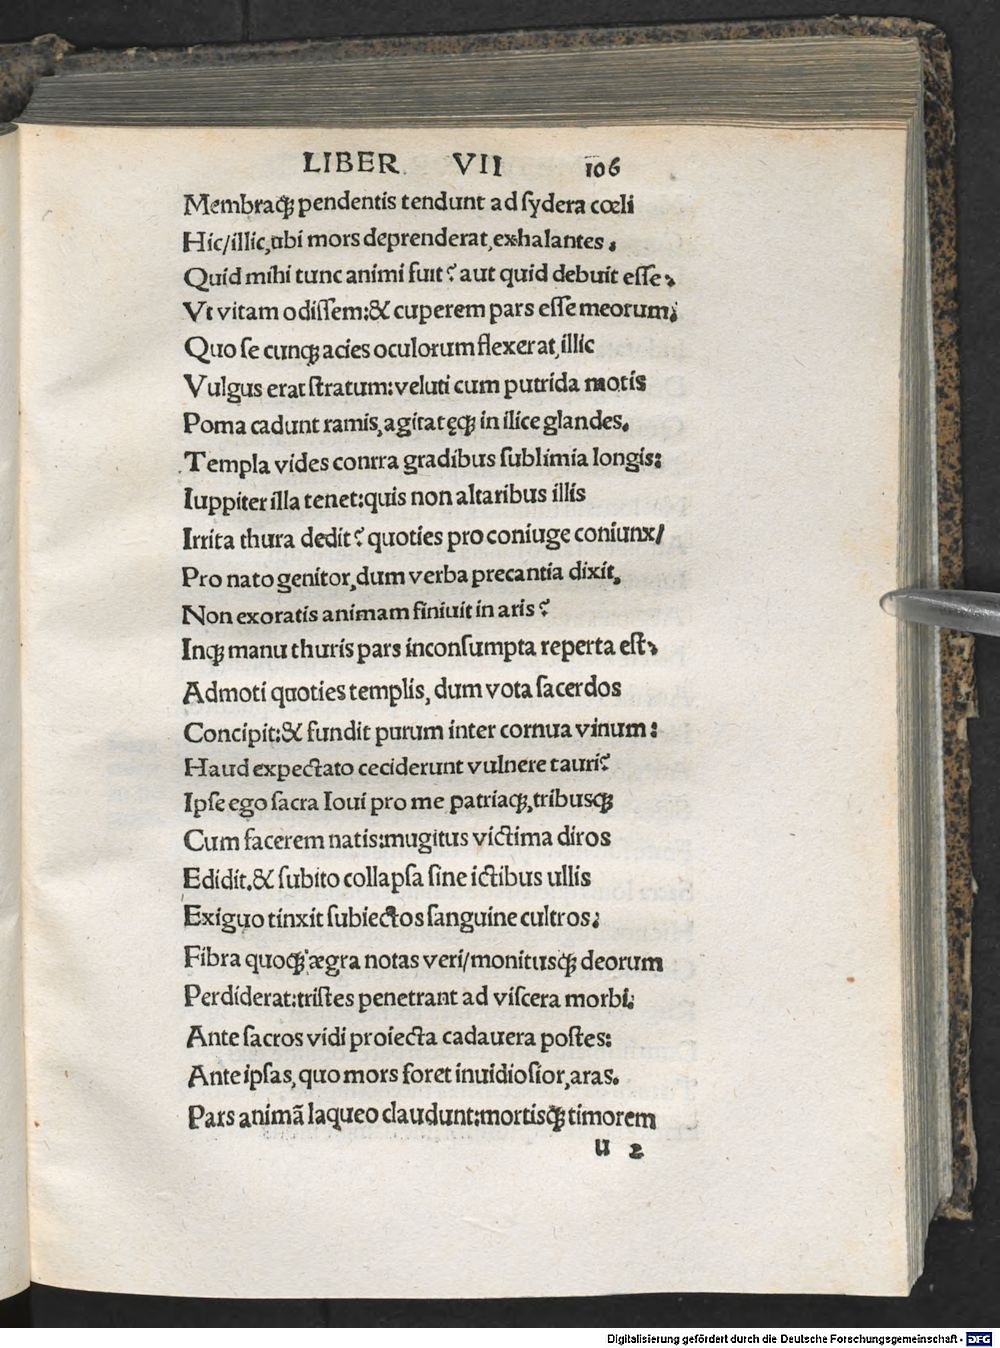 LIBER VII 106
Membraq; pendentis tendunt ad sydera cœli
Hic/illic,ubi mors deprenderat,exhalantes.
Quid mihi tunc animi fuit? aut quid debuit esse,
Vt vitam odissem:& cuperem pars esse meorum;
Quo se cunq; acies oculorum flexerat,illic
Vulgus erat stratum:veluti cum putrida motis
Poma cadunt ramis,agitatęq; in ilice glandes.
Templa vides conrra gradibus sublimia longis:
Iuppiter illa tenet:quis non altaribus illis
Irrita thura dedit? quoties pro coniuge coniunx/
Pro nato genitor,dum verba precantia dixit,
Non exoratis animam finiuit in aris?
Inq; manu thuris pars inconsumpta reperta est,
Admoti quoties templis, dum vota sacerdos
Concipit:& fundit purum inter cornua vinum:
Haud expectato ceciderunt vulnere tauri?
Ipse ego sacra Ioui pro me patriaq;,tribusq;
Cum facerem natis:mugitus victima diros
Edidit.& subito collapsa sine ictibus ullis
Exiguo tinxit subiectos sanguine cultros;
Fibra quoq; ægra notas veri/monitusq; deorum
Perdiderat:tristes penetrant ad viscera morbi;
Ante sacros vidi proiecta cadauera postes:
Ante ipsas,quo mors foret inuidiosior,aras.
Pars animā laqueo claudunt:mortisq; timorem
u 2
Digitalisierung gefördert durch die Deutsche Forschungsgemeinschaft - DFG